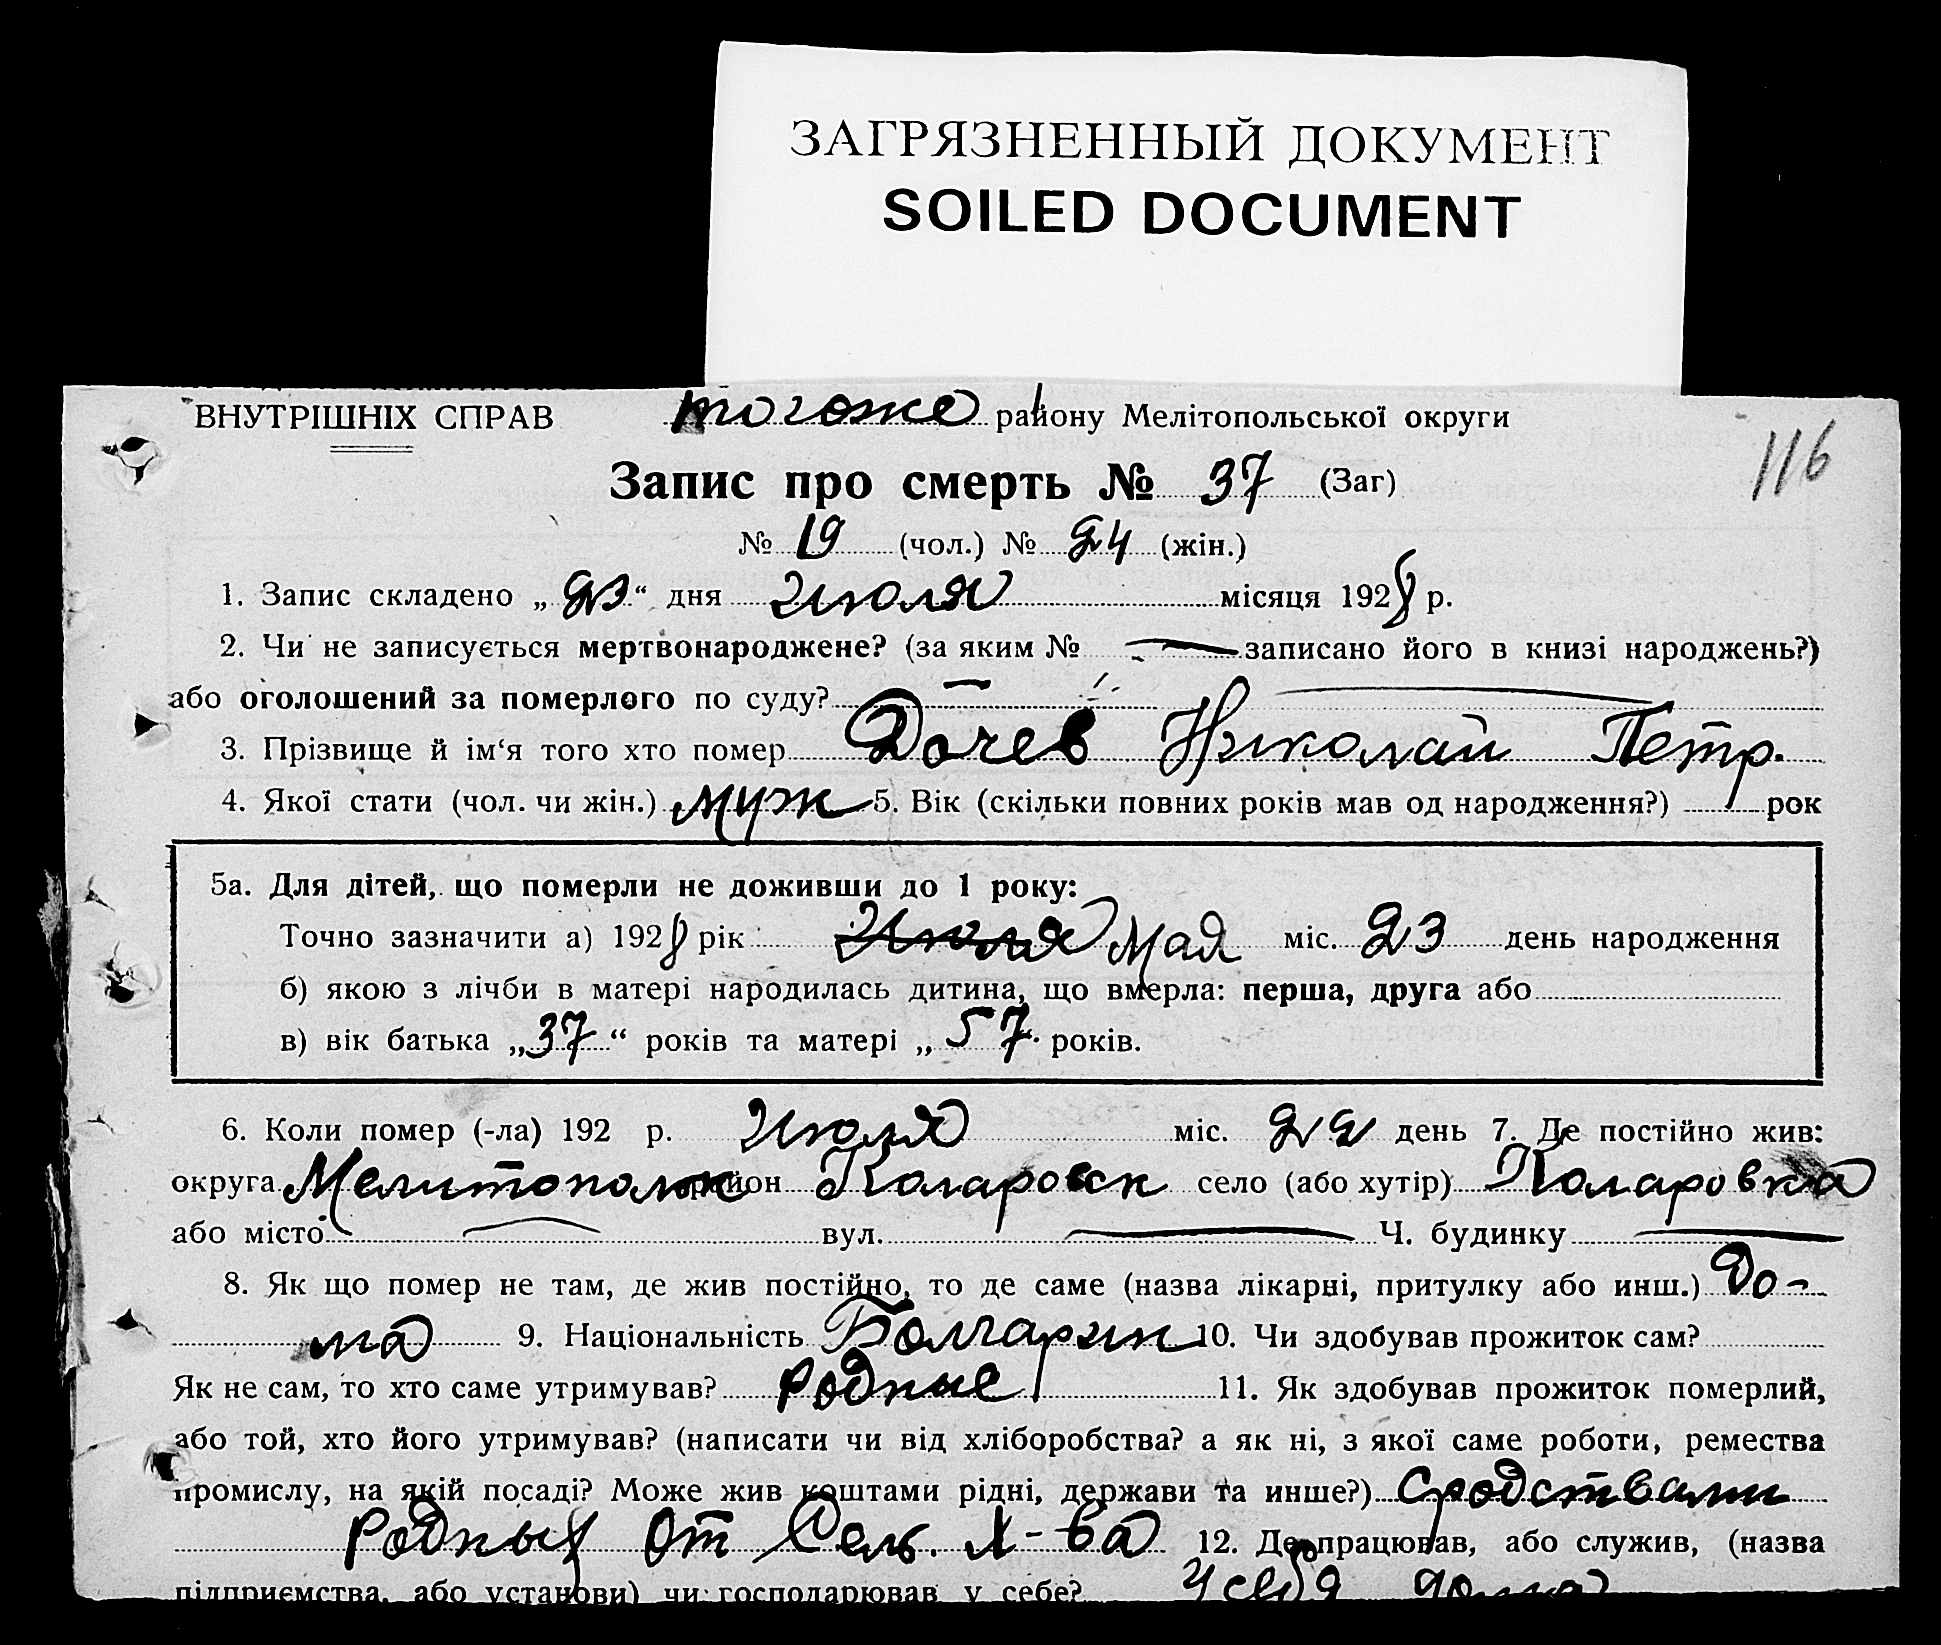 ЗАГРЯЗНЕННЫЙ ДОКУМЕНТ
SOILED DOCUMENT
ВНУТРІШНІХ СПРАВ тогоже району Мелітопольської округи
116
Запис про смерть № 37 (Заг)
№ 19 (чол.) № 24 (жін.)
1. Запис складено „23“ дня Июля місяця 1928 р.
2. Чи не записується мертвонароджене? (за яким № — записано його в книзі народжень?)
або оголошений за померлого по суду? —
3. Прізвище й ім‘я того хто помер Дочев Николай Петр.
4. Якої стати (чол. чи жін.) муж 5. Вік (скільки повних років мав од народження?) рок
5а. Для дітей, що померли не доживши до 1 року:
Точно зазначити а) 1928 рік Июля Мая міс. 23 день народження
б) якою з лічби в матері народилась дитина, що вмерла: перша, друга або
в) вік батька „37“ років та матері „57“ років.
6. Коли помер (-ла) 192 р. Июля міс. 22 день 7. Де постійно жив:
округа Мелитополь район Коларовск село (або хутір) Коларовка
або місто — вул. — Ч. будинку —
8. Як що помер не там, де жив постійно, то де саме (назва лікарні, притулку або инш.) До-
ма 9. Національність Болгарин 10. Чи здобував прожиток сам?
Як не сам, то хто саме утримував? родные 11. Як здобував прожиток померлий,
або той, хто його утримував? (написати чи від хліборобства? а як ні, з якої саме роботи, ремества
промислу, на якій посаді? Може жив коштами рідні, держави та инше?) сродствами
родных от Сель. Х-ва 12. Де працював, або служив, (назва
підприємства, або установи) чи господарював у себе? У себя дома